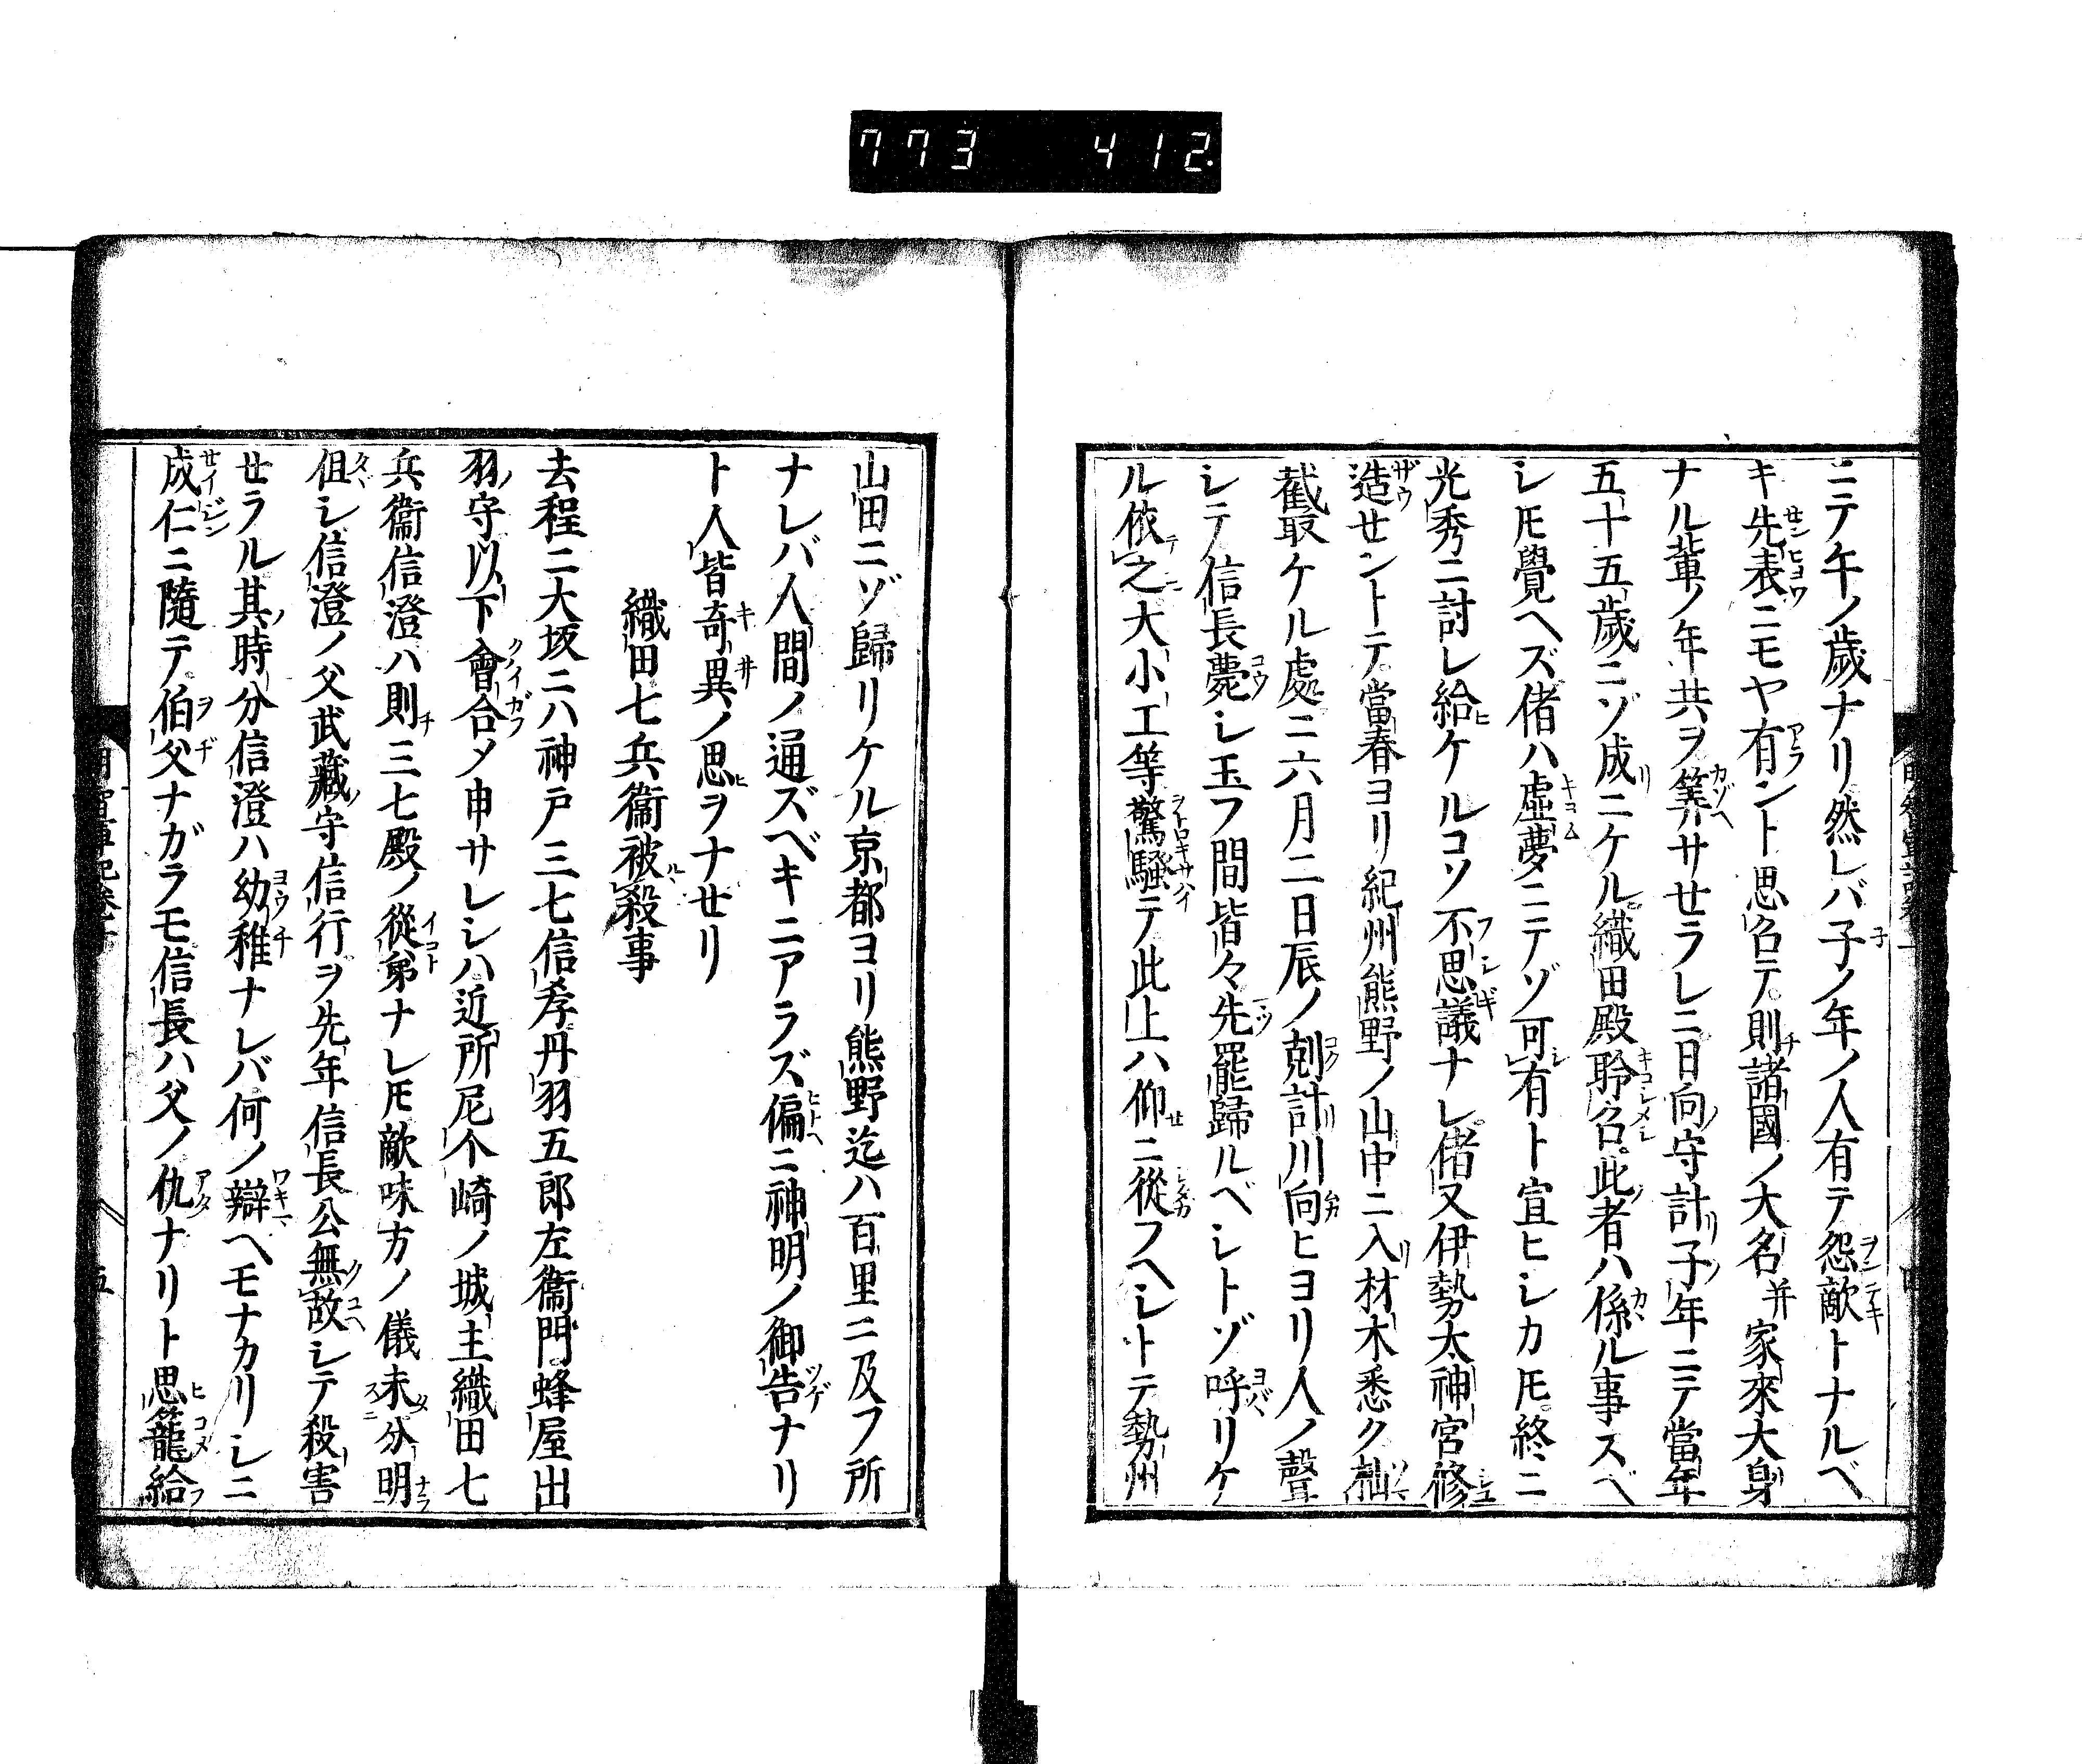 773 412
ニテ午ノ歳ナリ然レバ子ノ年ノ人有テ怨敵トナルベ
キ先表ニモヤ有ント思召テ則諸國ノ大名并家來大身
ナル輩ノ年共ヲ筭サセラレニ日向守計子年ニテ當年
五十五歳ニゾ成ニケル織田殿聆召此者ハ係ル事スベ
シトモ覺ヘズ偖ハ虚夢ニテゾ可有ト宣ヒシカトモ終ニ
光秀ニ討レ給ケルコソ不思議ナレ偖又伊勢太神宮修
造セントテ當春ヨリ紀州熊野ノ山中ニ入材木悉ク杣
截取ケル處ニ六月二日辰ノ剋計川向ヒヨリ人ノ聲
シテ信長薨シ玉フ間皆々先罷歸ルベシトゾ呼リケ
ル依之大小工等驚騷テ此上ハ仰ニ從フヘシトテ勢州
山田ニゾ歸リケル京都ヨリ熊野迄ハ百里ニ及フ所
ナレバ人間ノ通ズベキニアラズ偏ニ神明ノ御告ナリ
ト人皆奇異ノ思ヲナセリ
織田七兵衞被殺事
去程ニ大坂ニハ神戸三七信孝丹羽五郎左衞門蜂屋出
羽守以下會合メ申サレシハ近所尼个崎ノ城主織田七
兵衞信澄ハ則三七殿ノ從弟ナレトモ敵味方ノ儀未分明
但シ信澄ノ父武藏守信行ヲ先年信長公無故シテ殺害
セラル其時分信澄ハ幼稚ナレバ何ノ辯ヘモナカリシニ
成仁ニ隨テ伯父ナガラモ信長ハ父ノ仇ナリト思籠給